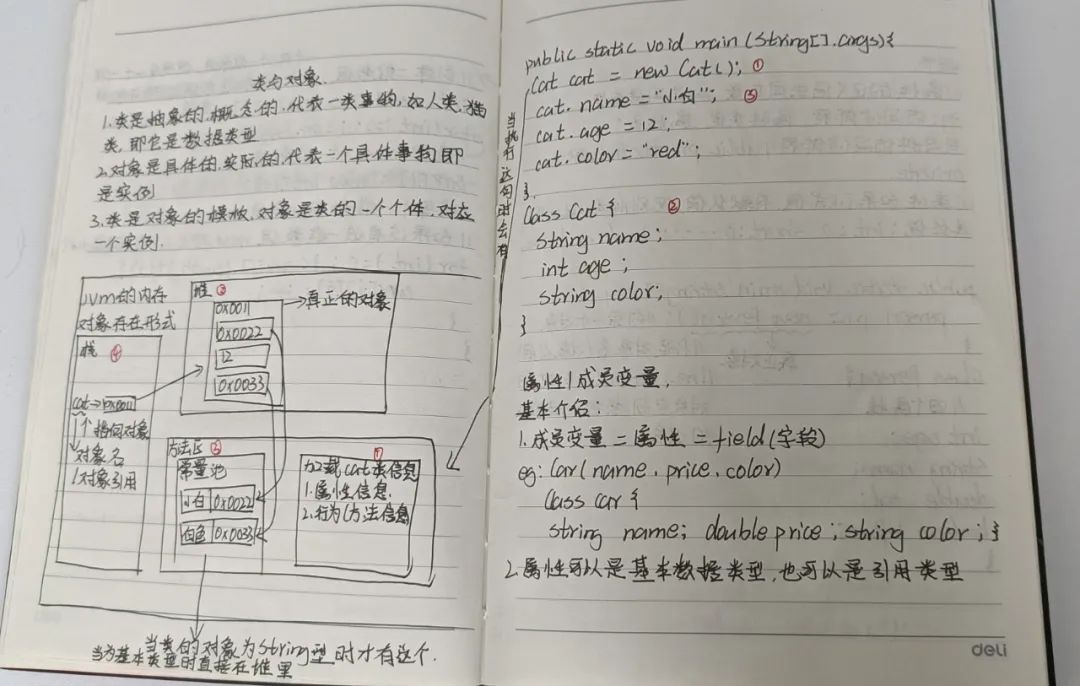 类与对象
1.类是抽象的,概念的,代表一类事物,如人类,猫
类,即它是数据类型
2.对象是具体的,实际的,代表一个具体事物即
是实例
3.类是对象的模板,对象是类的一个个体,对应
一个实例.
jvm的内存
对象存在形式
栈 ④
cat→0x0011
指向对象
对象名
对象引用
堆 ③
0x0011
→真正的对象
0x0022
12
0x0033
方法区 ②
常量池
小白 0x0022
白色 0x0033
①
加载cat类信息
1.属性信息.
2.行为(方法信息
当类的对象为string型时才有这个.
当为基本类型时直接在堆里
当执行这句时会有
public static void main (String[].args){
Cat cat = new Cat(); ①
cat. name = "小白"; ③
cat. age = 12;
cat. color = "red";
}.
Class Cat { ②
string name;
int age ;
string color;
}
属性/成员变量,
基本介绍:
1.成员变量=属性=field(字段)
eg: Car(name. price. color)
Class car {
string name; double price ; string color ; }
2.属性可以是基本数据类型,也可以是引用类型
deli